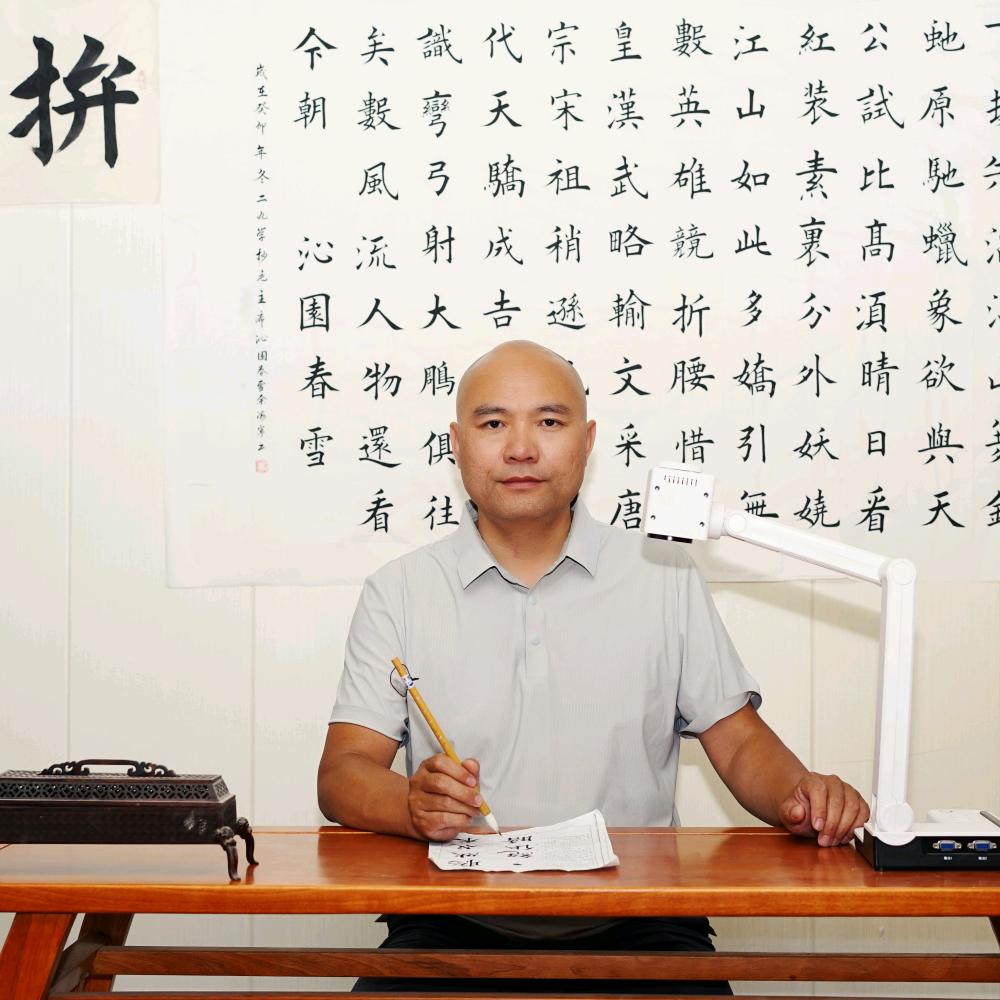 虵原馳蠟象欲與天
公試比髙湏晴日看
紅裝素裹分外妖嬈
江山如此多嬌引無
數英雄競折腰惜
皇漢武略輸文采唐
宗宋祖稍遜
代天驕成吉
識彎弓射大鵰俱往
矣數風流人物還看
今朝 沁園春雪
歲在癸卯年冬二九學抄毛主席沁園春雪
拚